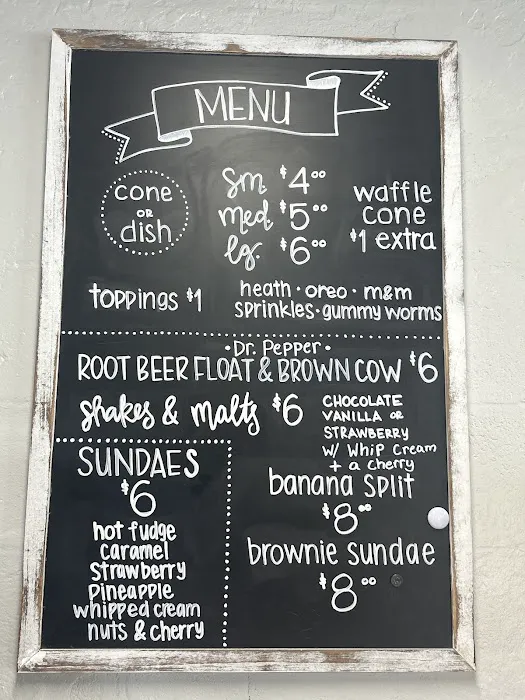 MENU
cone
OR
dish
sm. $4.00
med. $5.00
lg. $6.00
waffle
cone
$1 extra
toppings $1
heath · oreo · m&m
sprinkles · gummy worms
• Dr. Pepper •
ROOT BEER FLOAT & BROWN COW $6
shakes & malts $6
CHOCOLATE
VANILLA OR
STRAWBERRY
w/ Whip Cream
+ a cherry
SUNDAES
$6
hot fudge
caramel
strawberry
pineapple
whipped cream
nuts & cherry
banana split
$8.00
brownie sundae
$8.00